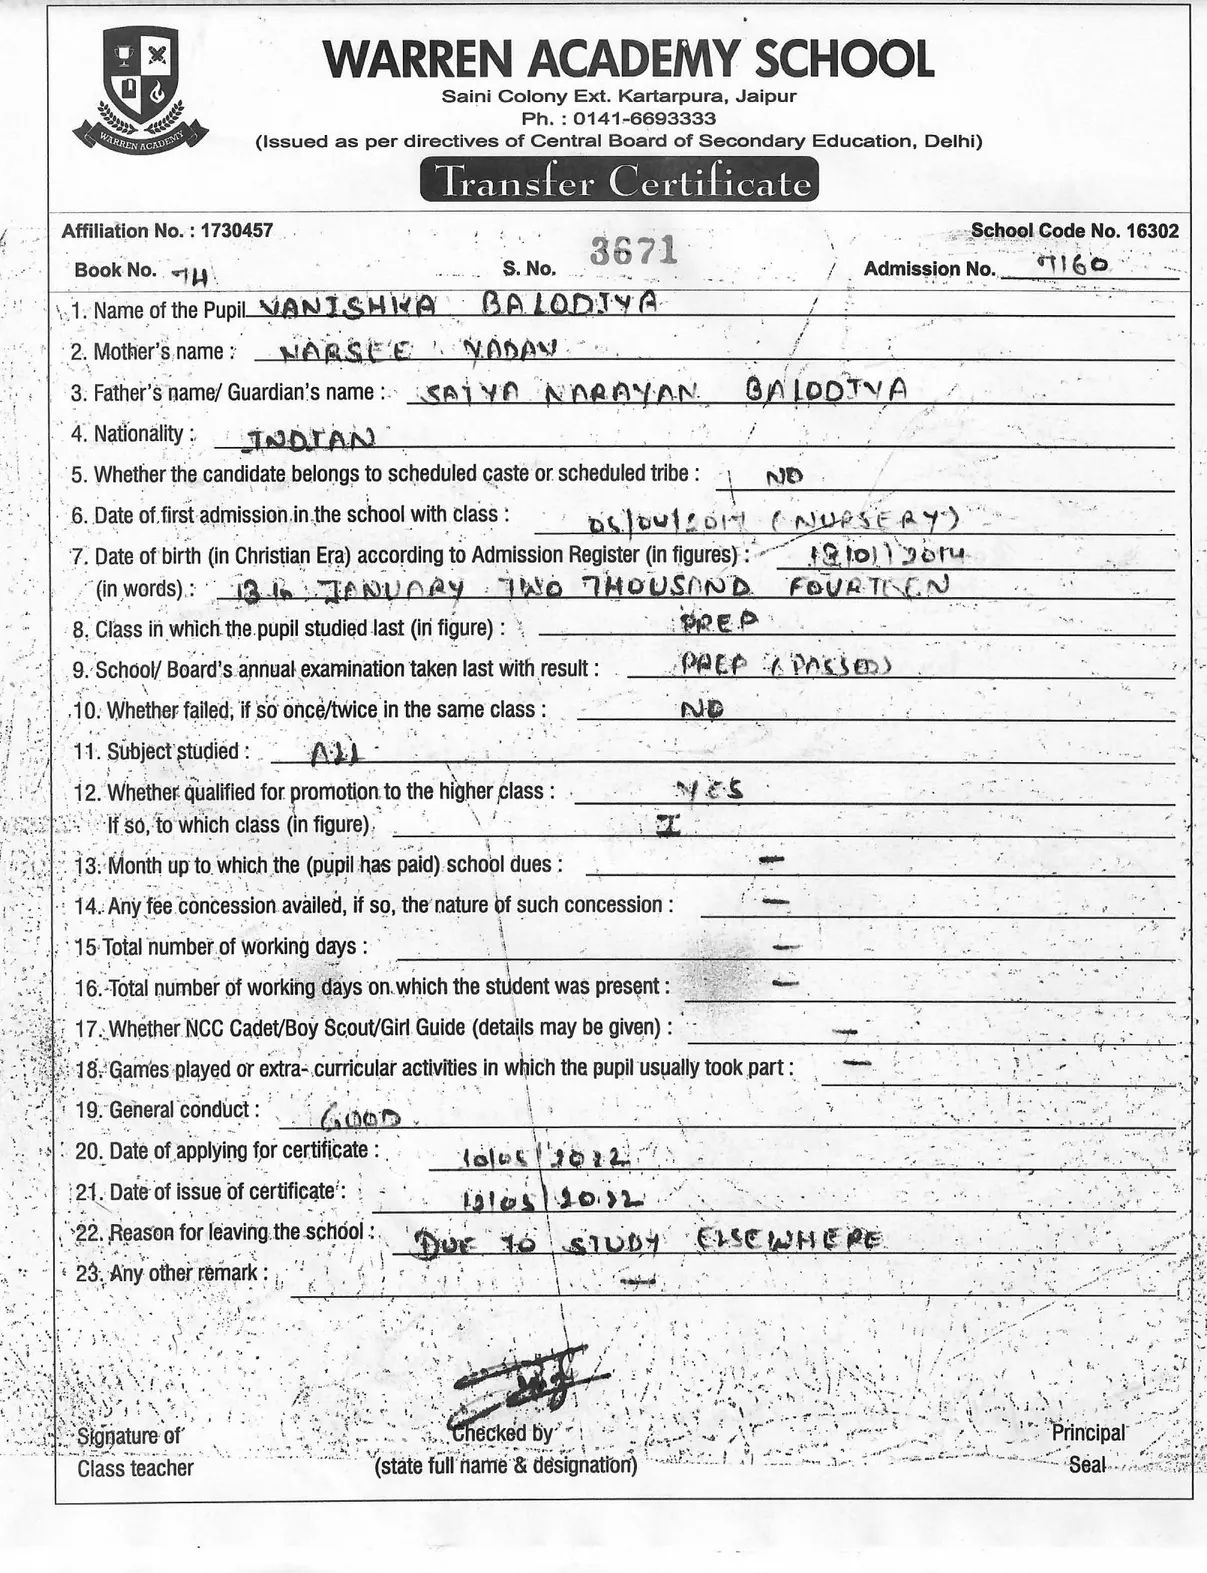 WARREN ACADEMY
WARREN ACADEMY SCHOOL
Saini Colony Ext. Kartarpura, Jaipur
Ph. : 0141-6693333
(Issued as per directives of Central Board of Secondary Education, Delhi)
Transfer Certificate
Affiliation No. : 1730457 School Code No. 16302
Book No. 74 S. No. 3671 Admission No. 7160
1. Name of the Pupil VANISHKA BALODIYA
2. Mother's name : NARSEE YADAV
3. Father's name/ Guardian's name : SATYA NARAYAN BALODIYA
4. Nationality : INDIAN
5. Whether the candidate belongs to scheduled caste or scheduled tribe : NO
6. Date of first admission in the school with class : (NURSERY)
7. Date of birth (in Christian Era) according to Admission Register (in figures) : 13/01/2014
(in words) : 13th JANUARY TWO THOUSAND FOURTEEN
8. Class in which the pupil studied last (in figure) : PREP
9. School/ Board's annual examination taken last with result : PREP (PASSED)
10. Whether failed, if so once/twice in the same class : NO
11. Subject studied : All
12. Whether qualified for promotion to the higher class : YES
If so, to which class (in figure) I
13. Month up to which the (pupil has paid) school dues : —
14. Any fee concession availed, if so, the nature of such concession : —
15 Total number of working days : —
16. Total number of working days on which the student was present : —
17. Whether NCC Cadet/Boy Scout/Girl Guide (details may be given) : —
18. Games played or extra- curricular activities in which the pupil usually took part : —
19. General conduct : GOOD
20. Date of applying for certificate : 10/05/2022
21. Date of issue of certificate : 12/05/2022
22. Reason for leaving the school : DUE TO STUDY ELSEWHERE
23. Any other remark : —
Signature of Checked by Principal
Class teacher (state full name & designation) Seal